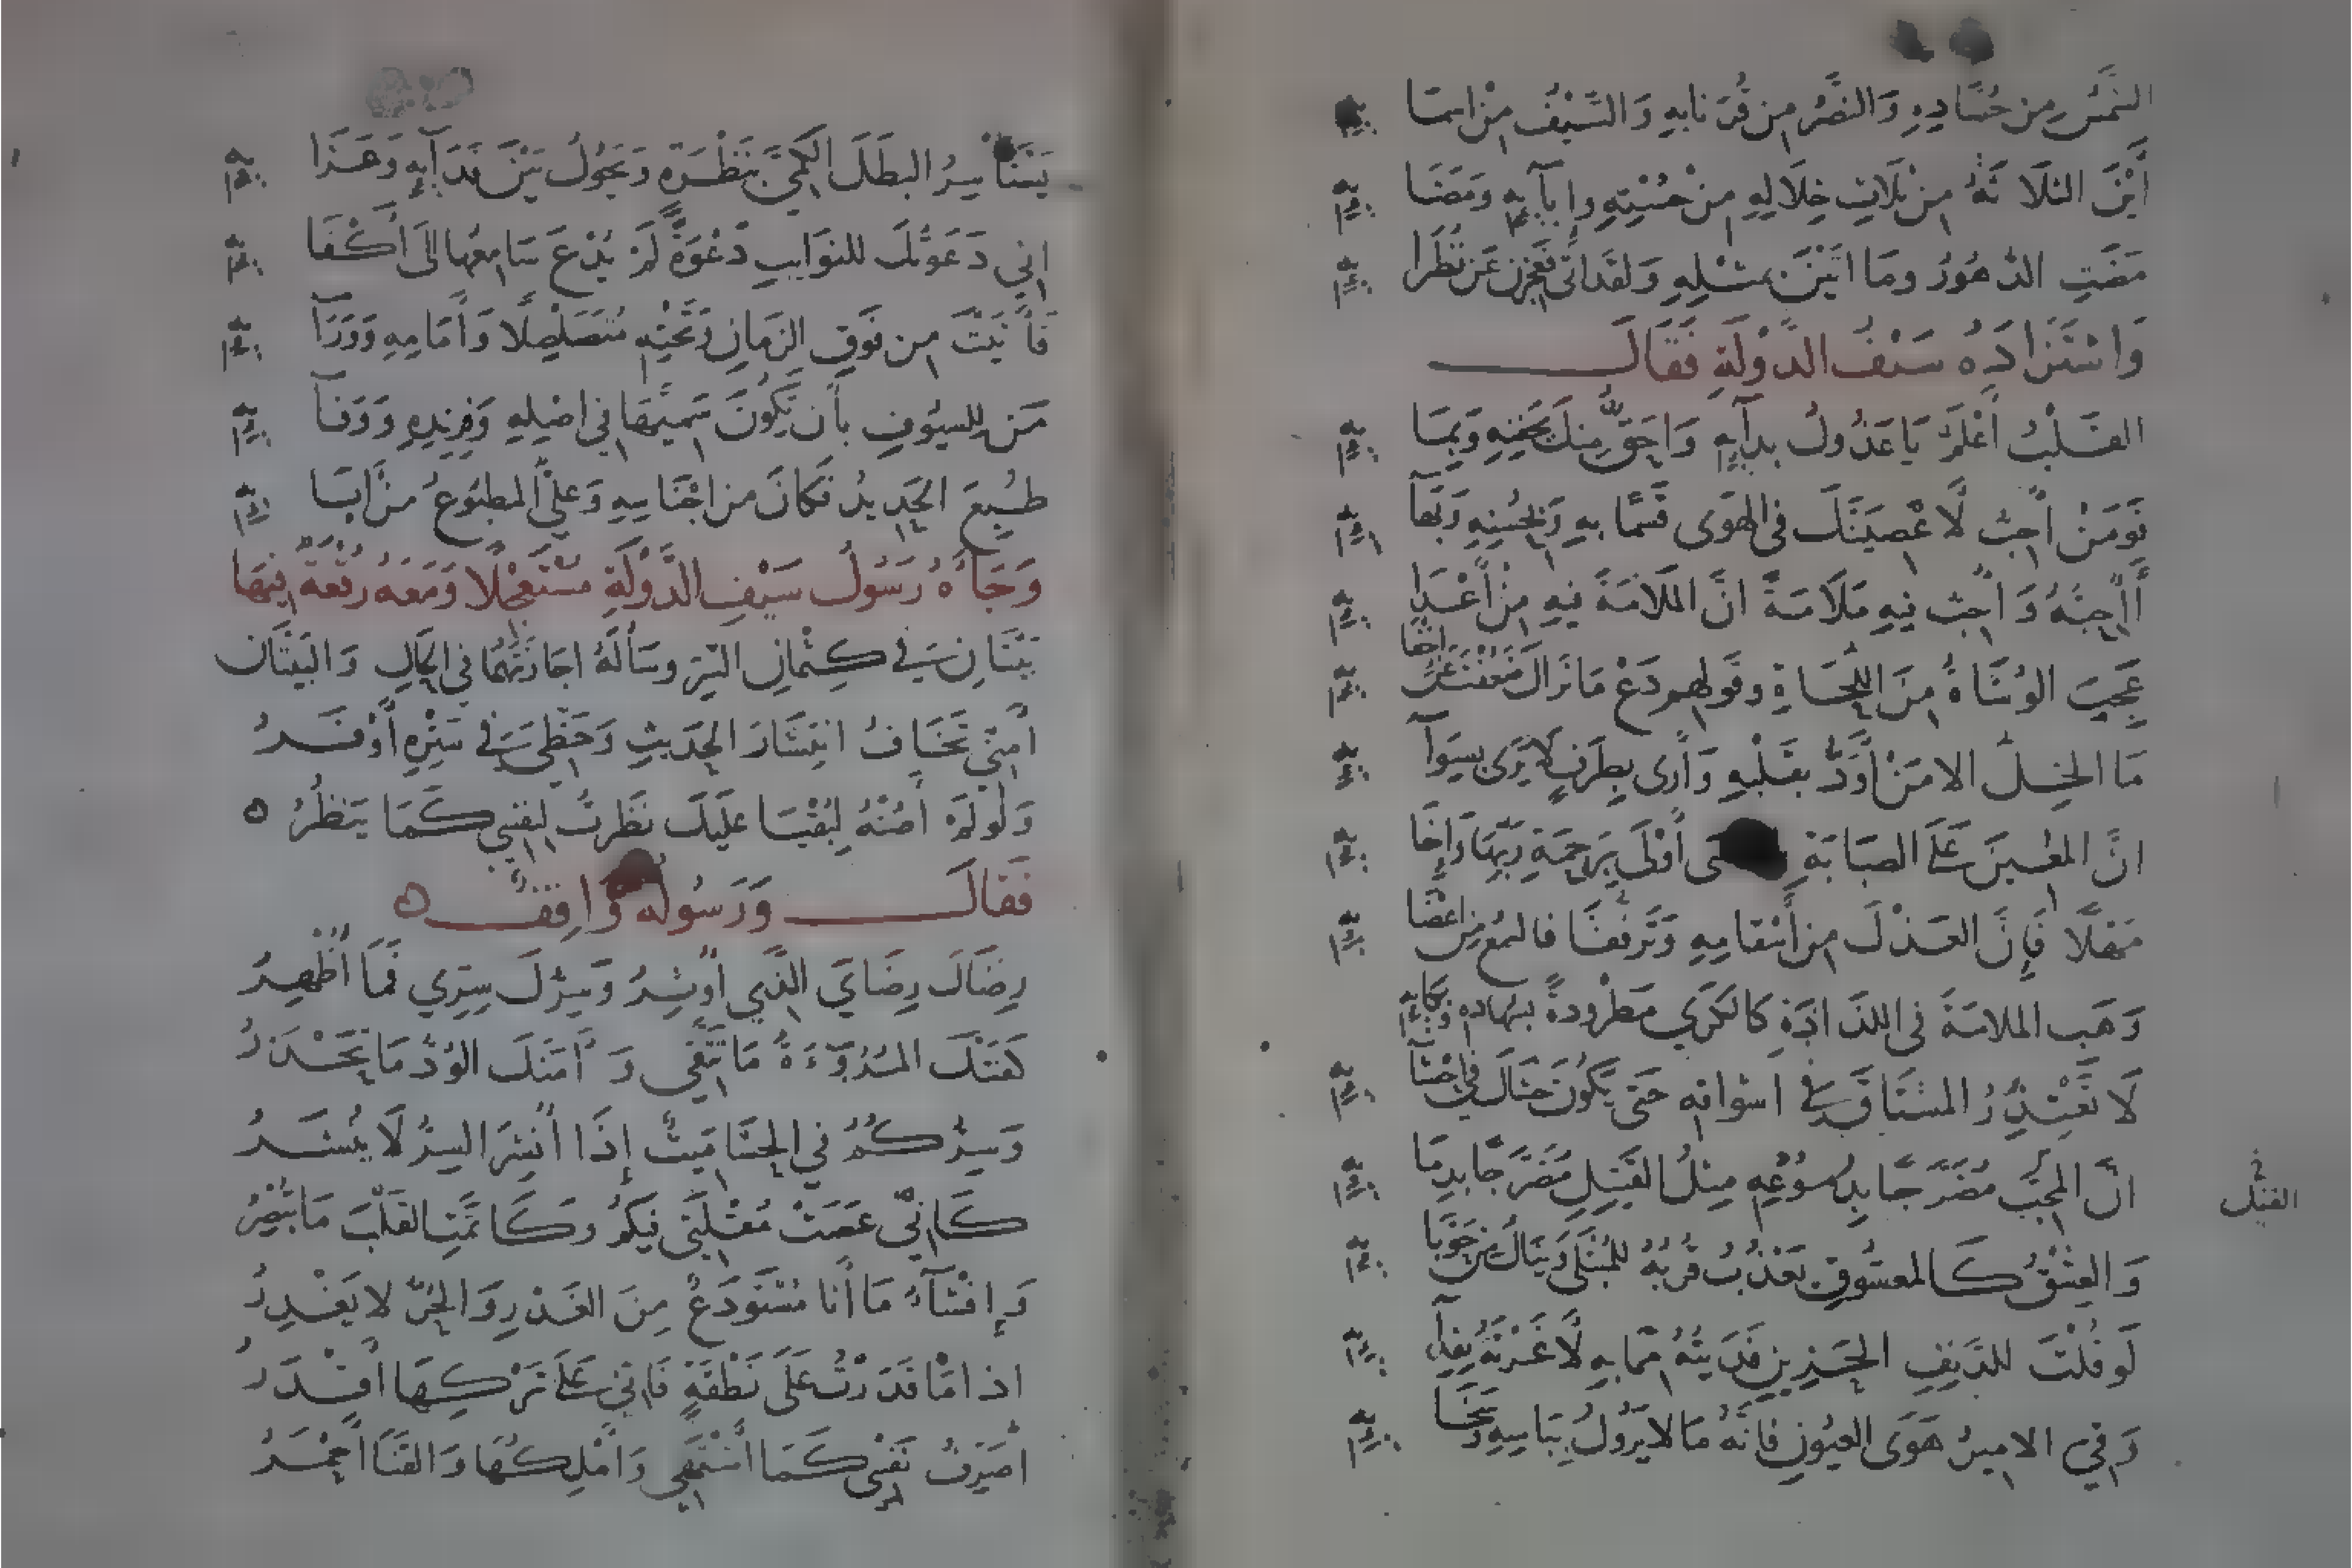 الشمس من حساده والنصر من قرنابه والسيف من اسما به
أين الثلاثة من ثلاث خلاله من حسنه وإبآيه ومضا به
مضت الدهور وما اتين بمثله ولقد اتى فعجزن عن نظرا به
واستزاده سيف الدولة فقال
القلب أعلم يا عذول بدآيه واحق منك بجفنه وبما به
فومن أحب لاعصينك في الهوى قسما به وبحسنه وبهآ به
أأحبه وأحب فيه ملامة ان الملامة فيه من أعدا به
عجب الوشاة من اللحاة وقولهم دع ما نراك ضعفت عن اخفا به
ما الخل الا من أود بقلبه وأرى بطرف لا يرى بسوآ به
ان المعين على الصبابة أولى برحمة ربها وإخا به
مهلا فإن العذل من أسقامه وترفقا فالسمع من اعضا به
وهب الملامة في اللذاذة كالكرى مطرودة بسهاده وبكا به
لا تعذر المشتاق في اشواقه حتى يكون حشاك في احشآ به
ان المحب مضرجا بدموعه مثل القتيل مضرجا بدما به
القتيل
والعشق كالمعشوق يعذب قربه للمبتلى وينال من حوبا به
لو قلت للدنف الحزين فديته مما به لاغرته بفدآ به
وقي الامير هوى العيون فانه ما لا يزول بباسه وسخا به
يستاسر البطل الكمي بنظرة ويحول بين فدآيه وعزا به
اني دعوتك للنوايب دعوة لم يدع سامعها الى أكفا به
فأتيت من فوق الزمان وتحته متصلصلا وأمامه وورآ به
من للسيوف بأن تكون سميها في اصله وفرنده ووفآ به
طبع الحديد فكان من اجناسه وعلي المطبوع من ابا به
وجآءه رسول سيف الدولة مستعجلا ومعه رقعة فيها
بيتان في كتمان السر وسأله اجازتهما في الحال والبيتان
أمني تخاف انتشار الحديث وحظي في ستره أوفر
ولو لم أصنه لبقيا عليك نظرت لنفسي كما ينظر ه
فقال ورسوله واقف ه
رضاك رضاي الذي أوثر وسرك سري فما أظهر
كفتك المروءة ما تتقي وأمنك الود ما تحذر
وسركم في الحشا ميت إذا أنشر السر لا ينشر
كاني عصت مقلتي فيكم وكاتمت القلب ما تبصر
وإفشآء ما أنا مستودع من الغدر والحر لا يغدر
اذا ما قدرت على نطقة فاني على تركها أقدر
أصرف نفسي كما أشتهي وأملكها والقنا أحمر